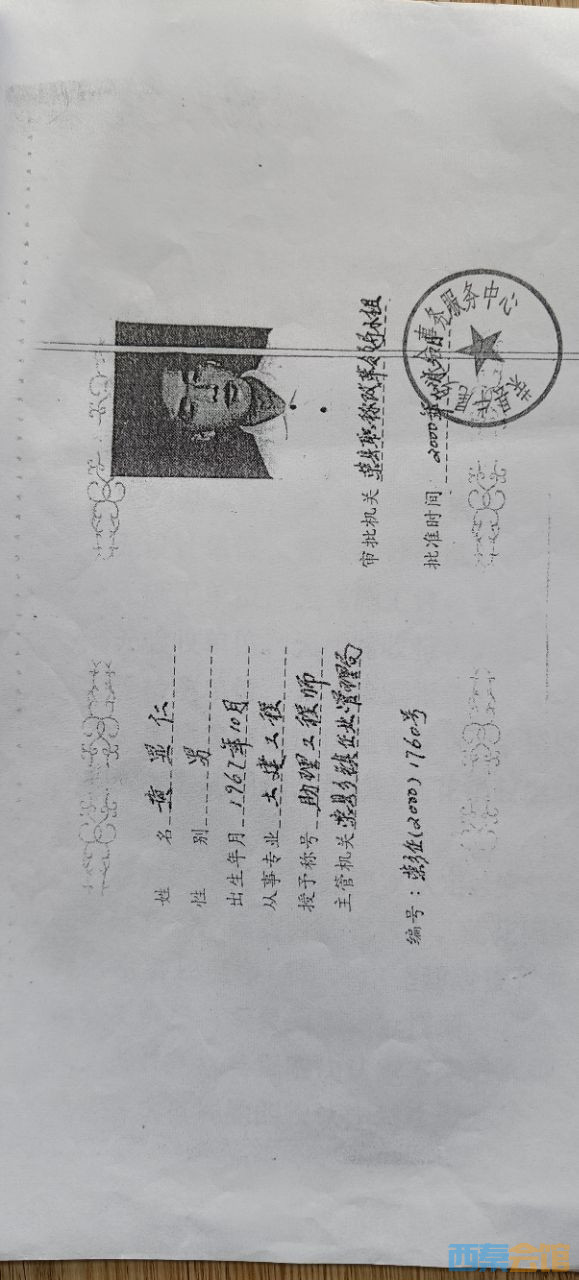 姓 名 黄显仁
性 别 男
出生年月 1967年10月
从事专业 土建工程
授予称号 助理工程师
主管机关 荣县乡镇企业管理局
编号：荣乡企(2000)1760号
审批机关 荣县职称改革领导小组
批准时间：2000年
事务服务中心
西秦会馆